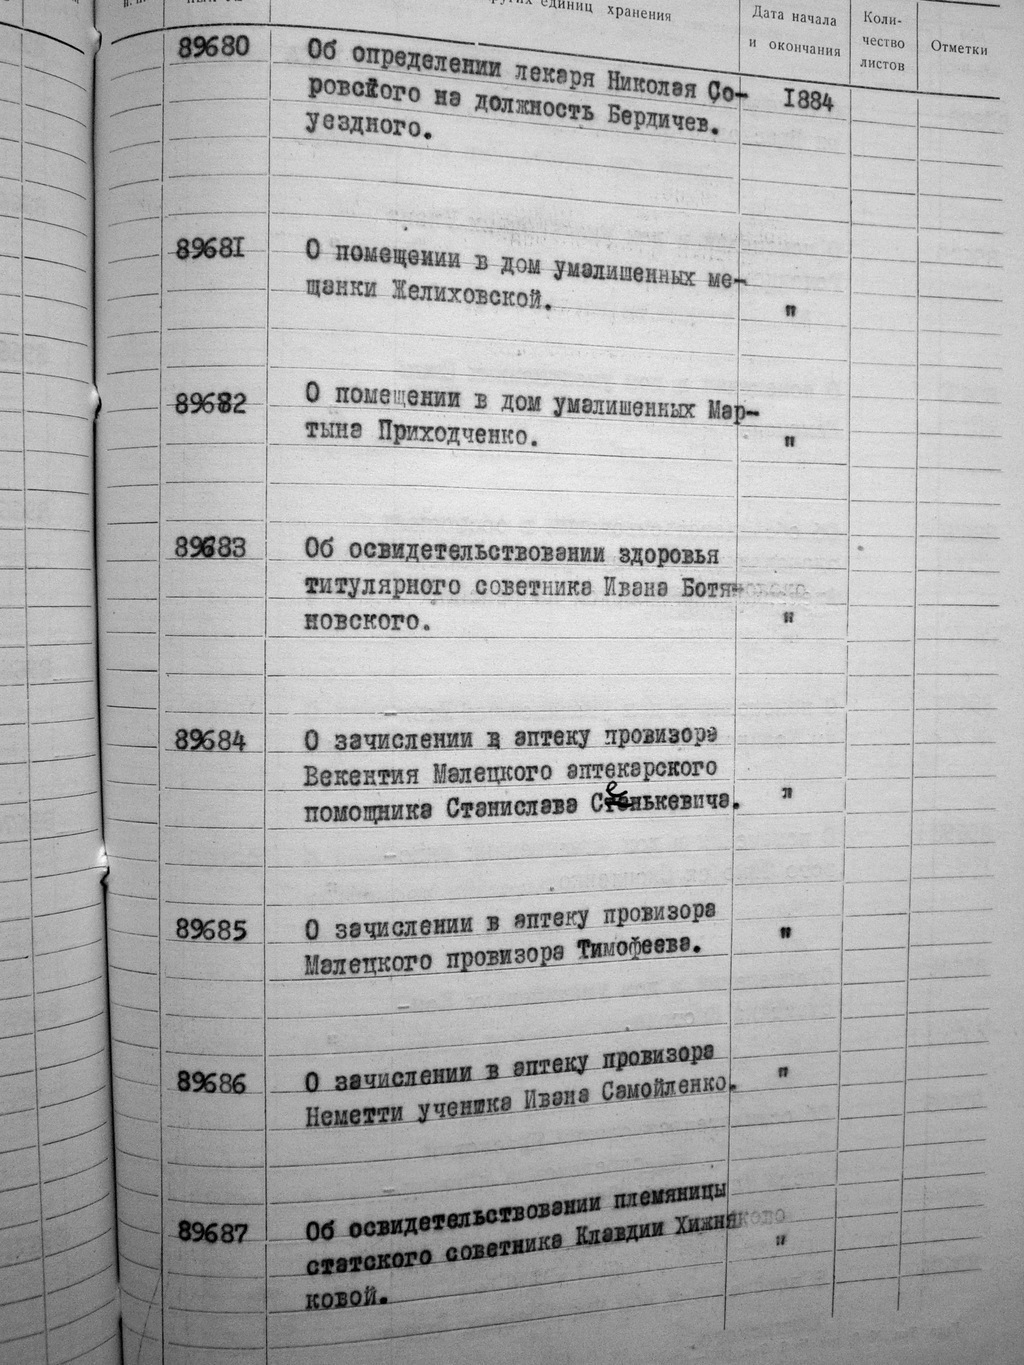 других единиц хранения
Дата начала
и окончания
Коли-
чество
листов
Отметки
89680
Об определении лекаря Николая Со-
ровского на должность Бердичев.
уездного.
1884
89681
О помещении в дом умалишенных ме-
щанки Желиховской.
"
89682
О помещении в дом умалишенных Мар-
тына Приходченко.
"
89683
Об освидетельствовании здоровья
титулярного советника Ивана Ботя-
новского.
"
89684
О зачислении в аптеку провизора
Векентия Малецкого аптекарского
помощника Станислава Сенькевича.
"
89685
О зачислении в аптеку провизора
Малецкого провизора Тимофеева.
"
89686
О зачислении в аптеку провизора
Неметти ученика Ивана Самойленко.
"
89687
Об освидетельствовании племяницы
статского советника Клавдии Хижня
ковой.
"